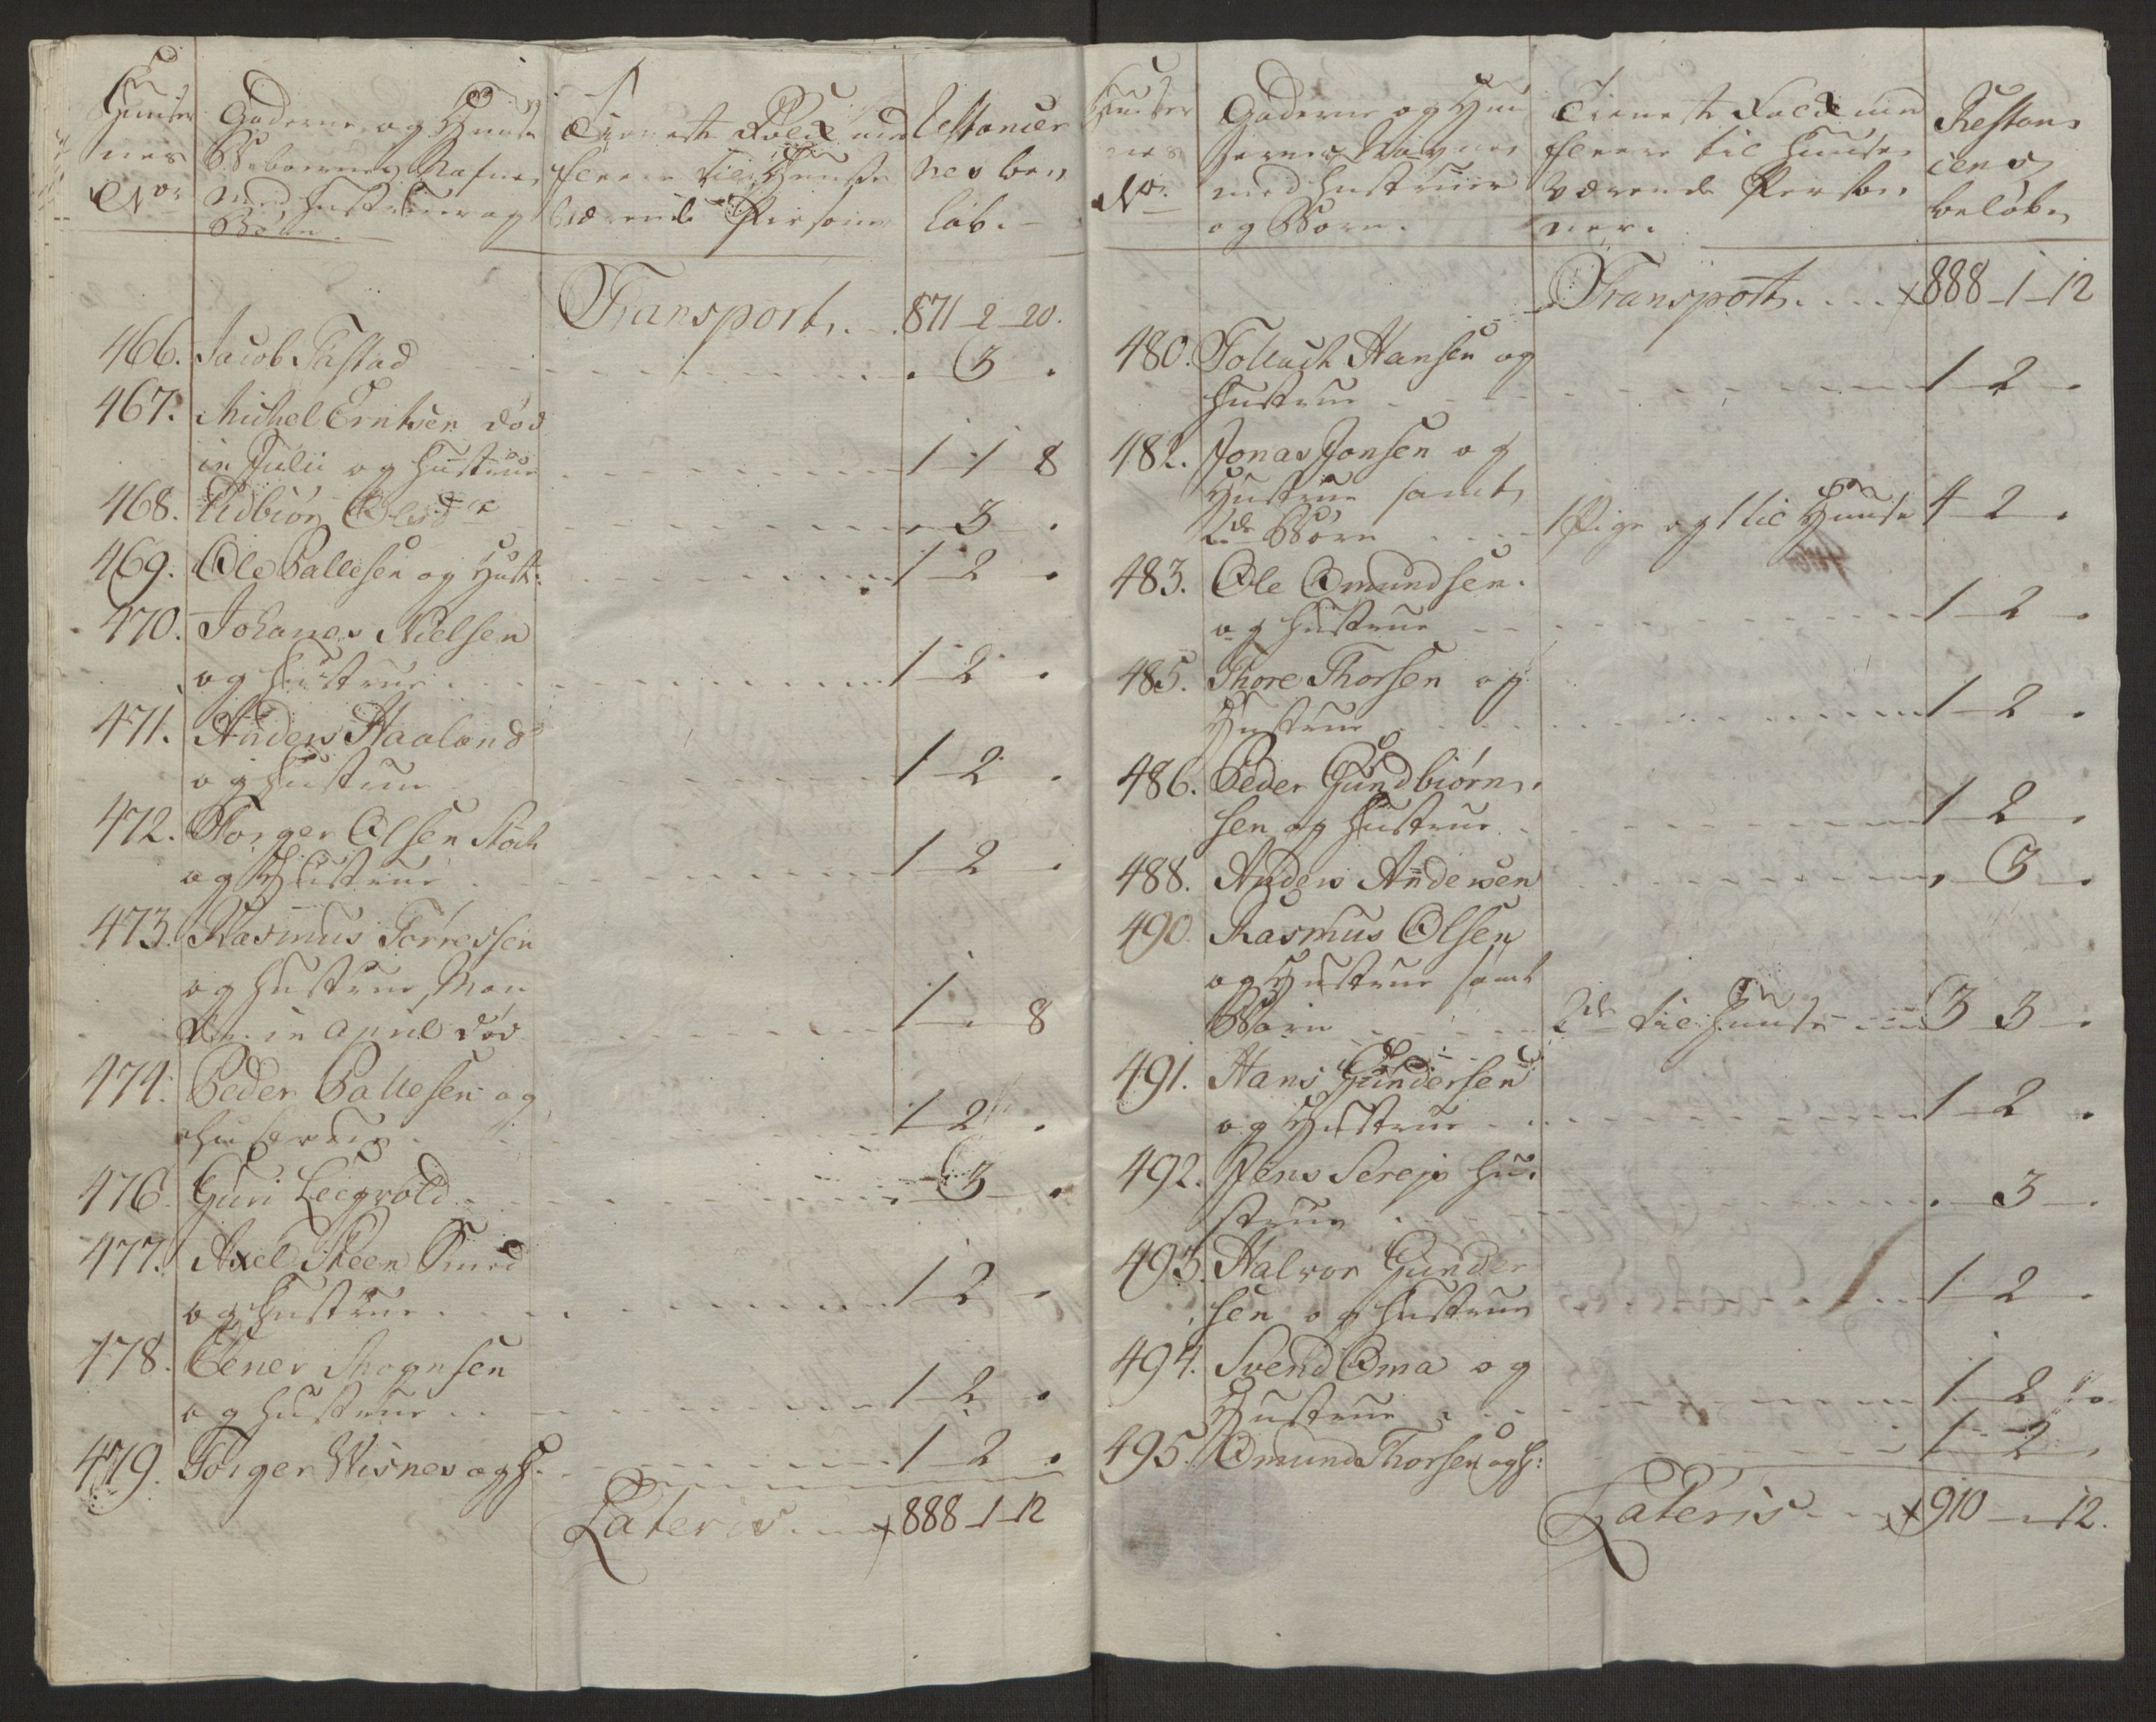 Huuser
nes
No.
Gaderne og Huuse
Beboernes Nafne
med Hustruer og
Børn.
Tieneste Folck med
fleere til Huuse
værende Persohner
Restancer
nes be„
løb.
Transport 871 - 2 - 20.
466. Jacob Tastad . 3 .
467. Michel Erntsen død
in Julii og Hustrue 1 - 1 8
468. Olsd.r 3 .
469. Ole Pallesen og Hust: 1 - 2 .
470. Johanes Nielsen
og Hustrue 1 - 2 .
471. Anders Haaland
og Hustrue 1 - 2 .
472. Torger Olsen Stoch
og Hustrue 1 - 2 .
473. Rasmus Torressen
og Hustrue, Man
den in April død 1 - . 8
474. Peder Pallesen og
Hustrue 1 - 2 .
476. Guri Leegvold 3 .
477. Axel Steen Smed
og Hustrue 1 - 2 .
478. Eener Thognsen
og Hustrue 1 - 2 .
479. Torger Wisnes og H. 1 - 2 .
Lateris 888 - 1 - 12
Huuser
nes
No.
Gaderne og Huu
sernes Navne
med Hustruer
og Børn.
Tieneste Folck med
fleere til Huuse
værende Perso„
ner.
Restan„
cens
beløb
Transport 888 - 1 - 12
480. Tollach Hansen og
Hustrue 1 - 2 .
482. Jonas Jonsen og
Hustrue samt
2de Børn 1 Pige og 1 til Huuse 4 - 2 .
483. Ole Omundsen
og Hustrue 1 - 2 .
485. Thore Thorsen og
Hustrue 1 - 2 .
486. Peder Gundbiørn„
sen og Hustrue 1 - 2 .
488. Anders Andersen . 3 .
490. Rasmus Olsen
og Hustrue samt
Børn 2de til Huuse 3 3 .
491. Hans Gundersen
og Hustrue 1 - 2 .
492. Jens Serejs Hu„
strue . 3 .
493. Halvor Gunder
sen og Hustrue 1 - 2 .
494. Svend Oma og
Hustrue 1 - 2 .
495. Omund Thorsen og H: 1 - 2 .
Lateris 910 - . - 12.